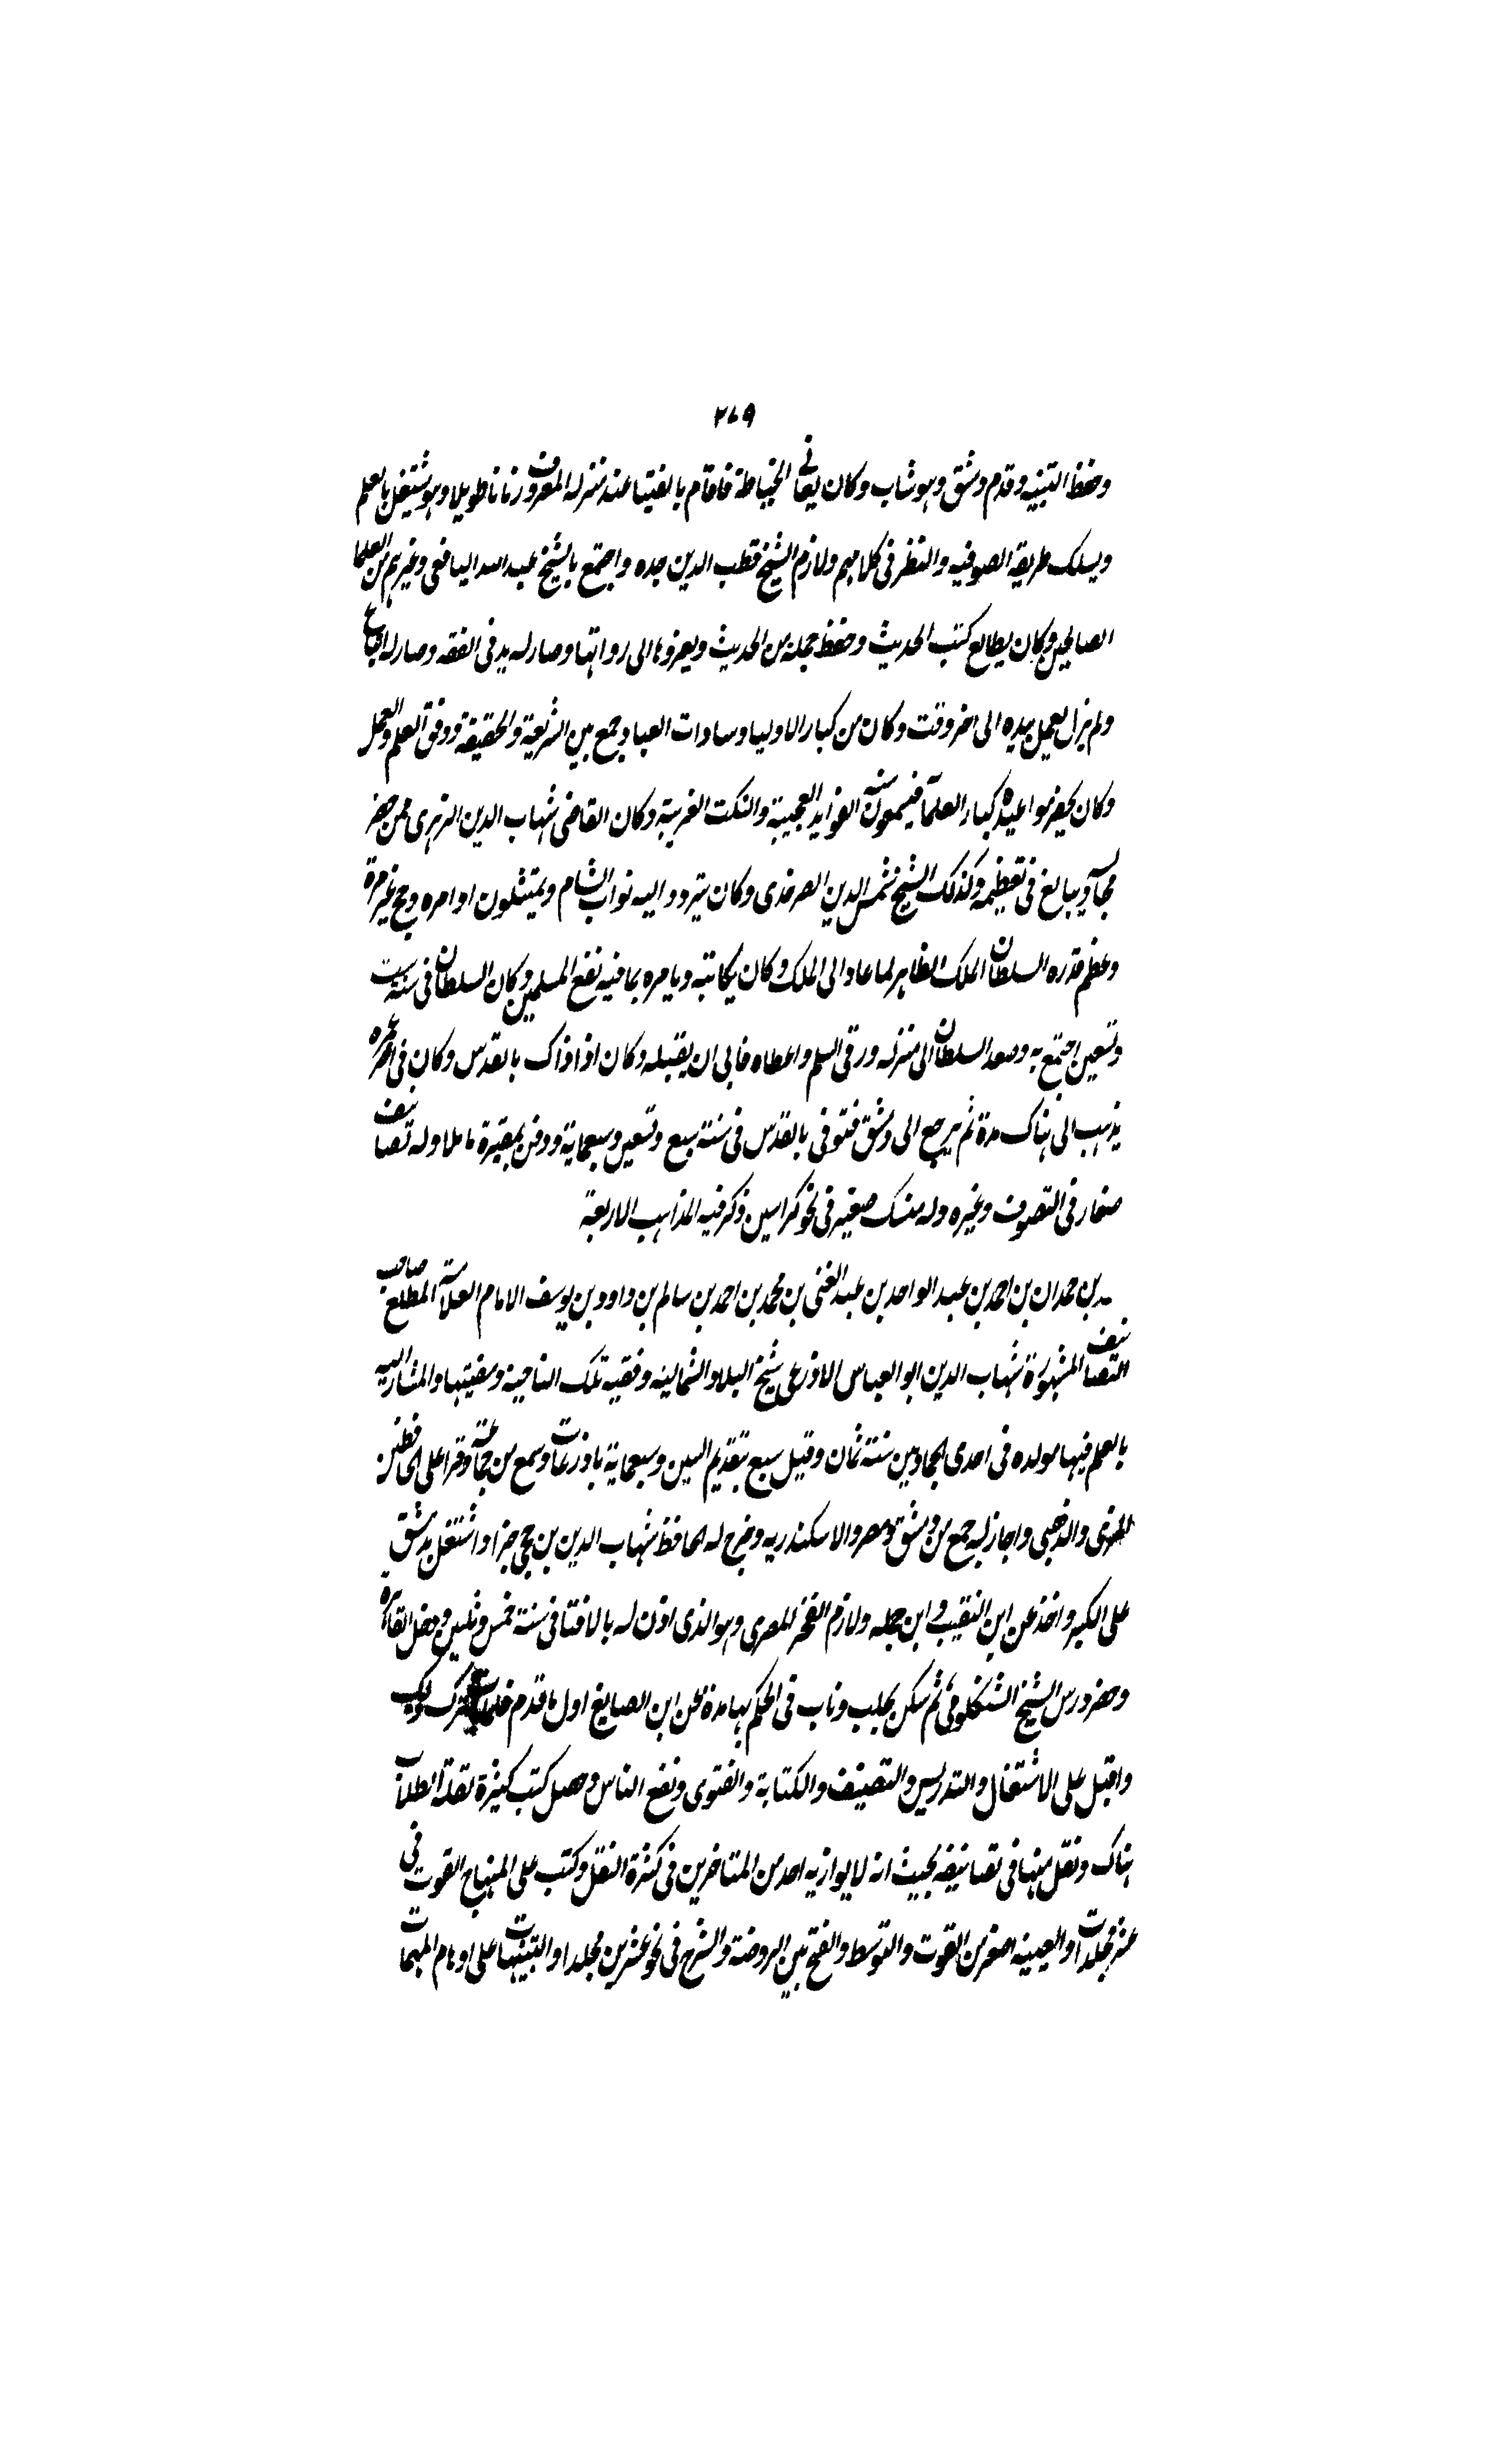 ٢٦٩
وحفظ التنبيه وقدم دمشق وهو شاب وكان يعانى الخياطة فاقام بالقبيبات عند منزله المعروف زمانا طويلا وهو يشتغل بالعلم
ويسلك طريقة الصوفية والنظر فى كلامهم ولازم الشيخ قطب الدين مده واجتمع بالشيخ عبد الله اليافعى وغيرهم من العلما
الصالحين وكان يطالع كتب الحديث وحفظ جملة من الحديث ويعزوها الى رواتها وصار له يد فى الفقه وصار له اتباع
ولم يزل يعمل بيده الى اخر وقت وكان من كبار الاوليا وسادات العباد جمع بين الشريعة والحقيقة ووفق العلم والعمل
وكان يحضر مواعيده كبار العلمآ فيسمعون منه الفوايد العجيبة والنكت الغريبة وكان القاضى شهاب الدين الزهرى ممن حضر
مجالسه ويبالغ فى تعظيمه وكذلك الشيخ شمس الدين الصرخدى وكان يتردد اليه نواب الشام ويمتثلون اوامره وحج غير مرة
وعظم قدره السلطان الملك الظاهر لما عاد الى الملك وكان يكاتبه ويامره بما فيه نفع المسلمين وكان السلطان فى سنة ست
وتسعين اجتمع به وصعد السلطان الى منزله ورقى السلم واعطاه فابى ان يقبله وكان اذ اذاك بالقدس وكان فى اخر عمره
يذهب الى هناك مدة ثم يرجع الى دمشق فتوفى بالقدس فى سنة سبع وتسعين وسبعماية ودفن بمقبرة ماملا وله تصانيف
صغار فى التصوف وغيره وله منسك صغير فى نحو كراسين ذكر فيه المذاهب الاربعة
بن حمدان بن احمد بن عبد الواحد بن عبد الغنى بن محمد بن احمد بن سالم بن داود بن يوسف الامام العلامة المطلع صاحب
التصانيف المشهورة شهاب الدين ابو العباس الاذرعى شيخ البلاد الشمالية وفقيه تلك الناحية ومفتيها والمشار اليه
بالعلم فيها مولده فى احدى الجمادين سنة ثمان وقيل سبع بتقديم السين وسبعماية باذرعات وسمع من جماعة وقرا على الحافظين
المزى والذهبى واجاز له جمع من دمشق ومصر والاسكندريه وخرج له الحافظ شهاب الدين بن حجى جزا واشتغل بدمشق
على الكبير واخذ عن ابن النقيب وابن جمله ولازم الفخر المصرى وهو الذى اذن له بالافتا فى سنة خمس وثلثين ودخل القاهرة
وحضر درس الشيخ الشنكلومى ثم سكن بحلب وناب فى الحكم بها مدة عن ابن الصايغ اول ما قدم فلما مات ترك ذلك
واقبل على الاشتغال والتدريس والتصنيف والكتابة والفتوى ونفع الناس وحصل كتب كثيرة لقلة الطلاب
هناك ونقل منها فى تصانيفه بحيث انه لا يوازيه احد من المتاخرين فى كثرة النقل وكتب على المنهاج القوت فى
عشر مجلدات والغيبة اصغر من القوت والتوسط والفتح بين الروضة والشرح فى نحو عشرين مجلدا والتنبيهات على اوهام المهمات